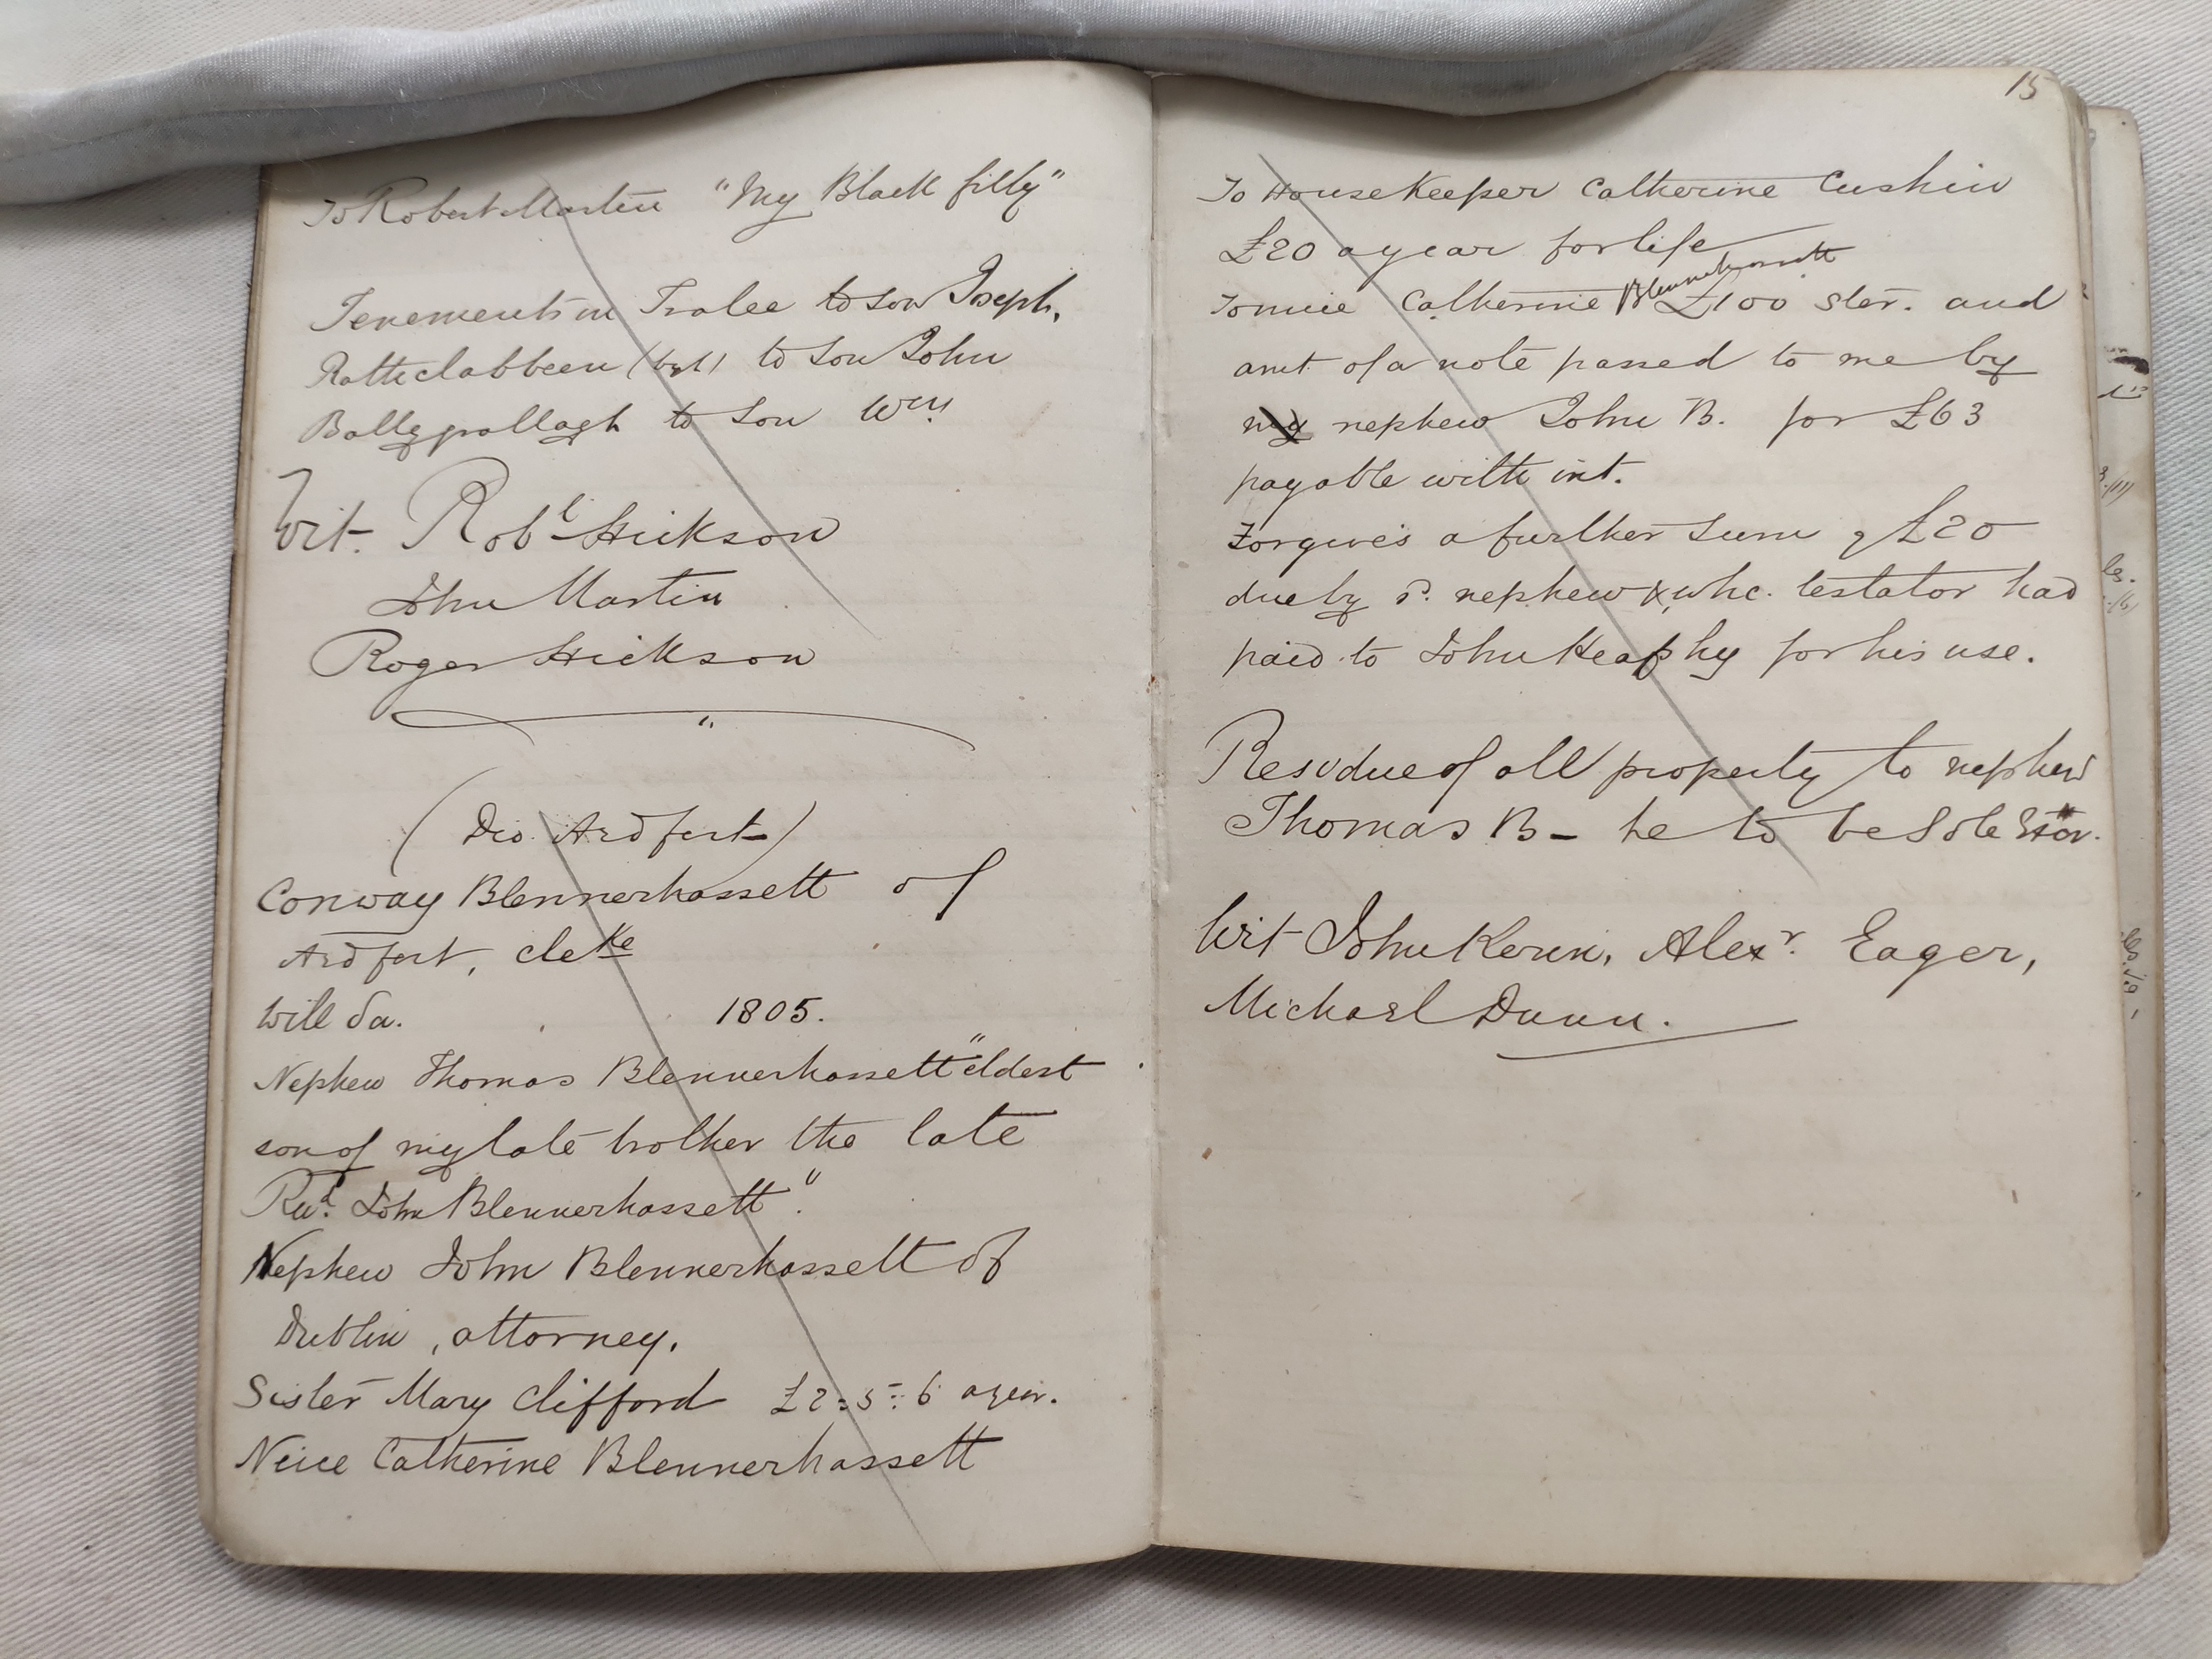 To Robert Martin "My Black filly"
Tenements in Tralee to son Joseph,
Rathclabbeen to son John
Ballygollagh to son Wm
Wit. Robt Hickson
John Martin
Roger Hickson
(Dio. Ardfert)
Conway Blennerhassett of
Ardfert, cleke
Will da. 1805.
Nephew Thomas Blennerhassett "eldest
son of my late brother the late
Revd. John Blennerhassett".
Nephew John Blennerhassett of
Dublin, attorney.
Sister Mary Clifford £2:5:6 a year.
Neice Catherine Blennerhassett
15
To Housekeeper Catherine Cushin
£20 a year for life
To niece Catherine Blennerhassett £100 ster. and
amt. of a note passed to me by
my nephew John B. for £63
payable with int.
Forgives a further sum of £20
due by sd. nephew & whc. testator had
paid to John Heaphy for his use.
Residue of all property to nephew
Thomas B – he to be Sole Exor.
Wit John Kerin, Alexr. Eager,
Michael Dunn.